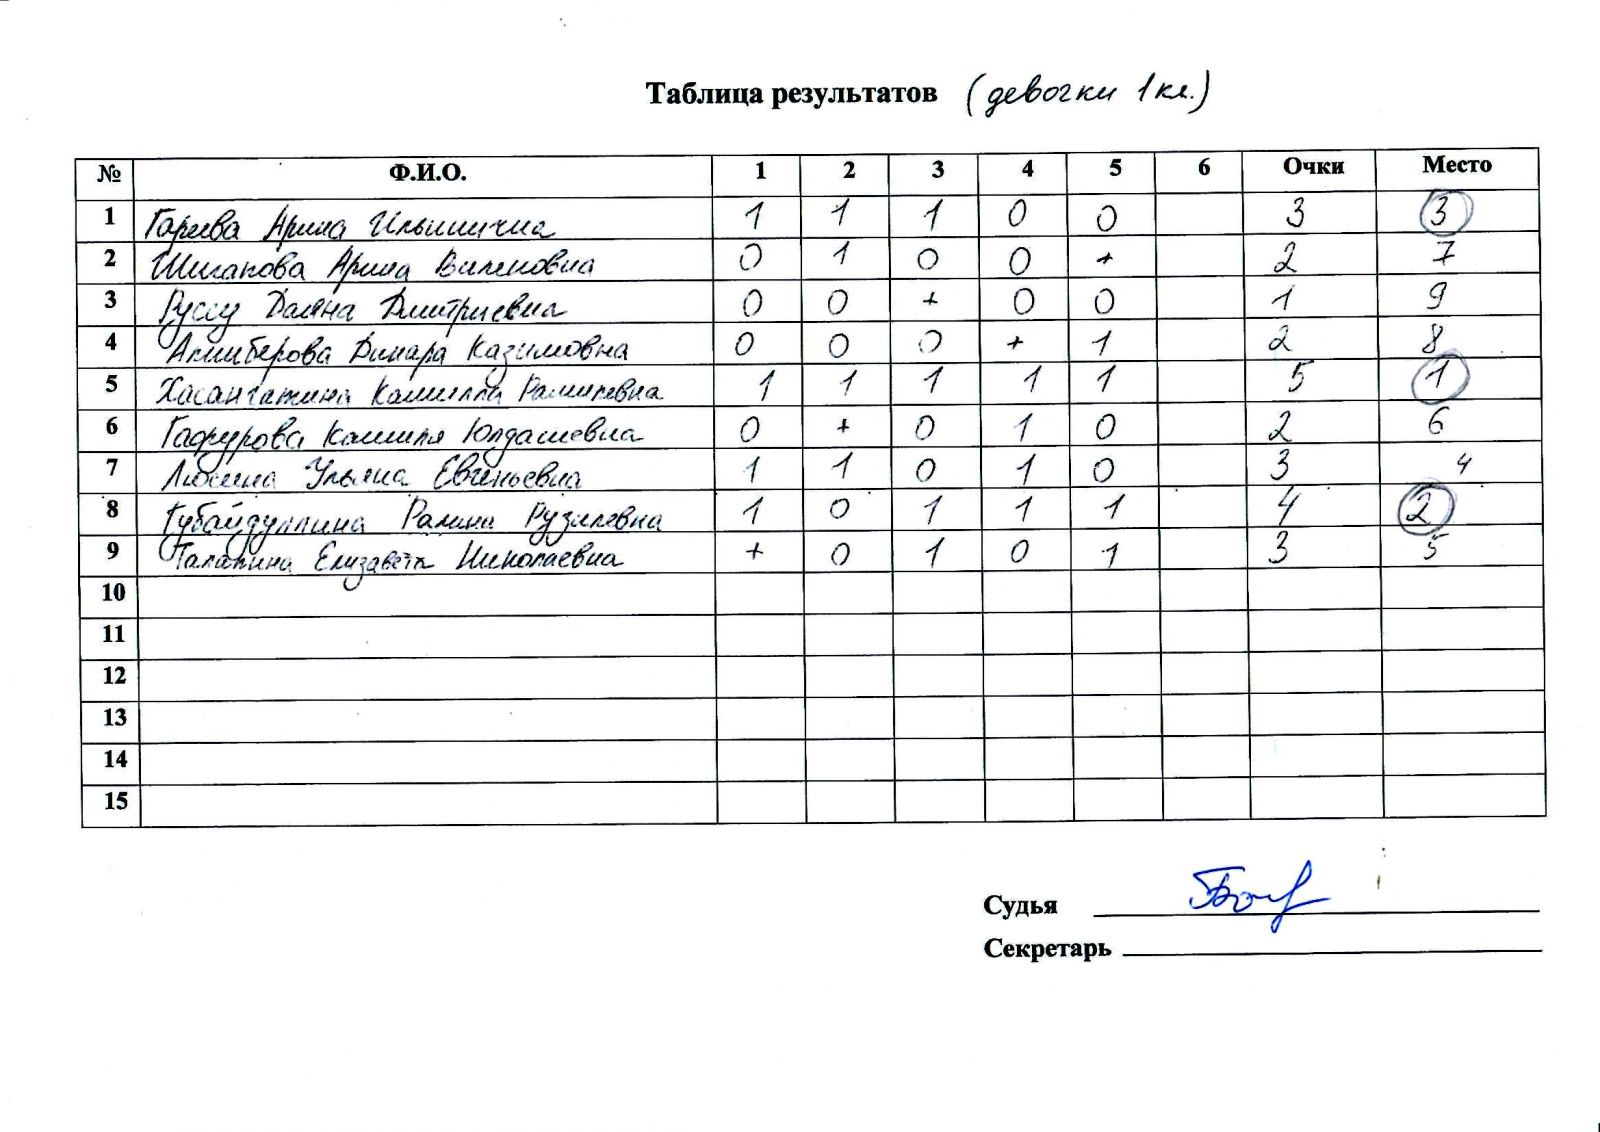 Таблица результатов (девочки 1 кл.)
№ Ф.И.О. 1 2 3 4 5 6 Очки Место
1 Гареева Арина Ильшатовна 1 1 1 0 0 3 3
2 Шигапова Арина Виленовна 0 1 0 0 + 2 7
3 Руссу Даяна Дмитриевна 0 0 + 0 0 1 9
4 Акимберова Динара Казимовна 0 0 0 + 1 2 8
5 Хасангатина Камилла Рамилевна 1 1 1 1 1 5 1
6 Гафурова Камиля Юлдашевна 0 + 0 1 0 2 6
7 Ульяна Евгеньевна 1 1 0 1 0 3 4
8 Губайдуллина Ралина Рузилевна 1 0 1 1 1 4 2
9 Галапина Елизавета Николаевна + 0 1 0 1 3 5
10
11
12
13
14
15
Судья
Секретарь